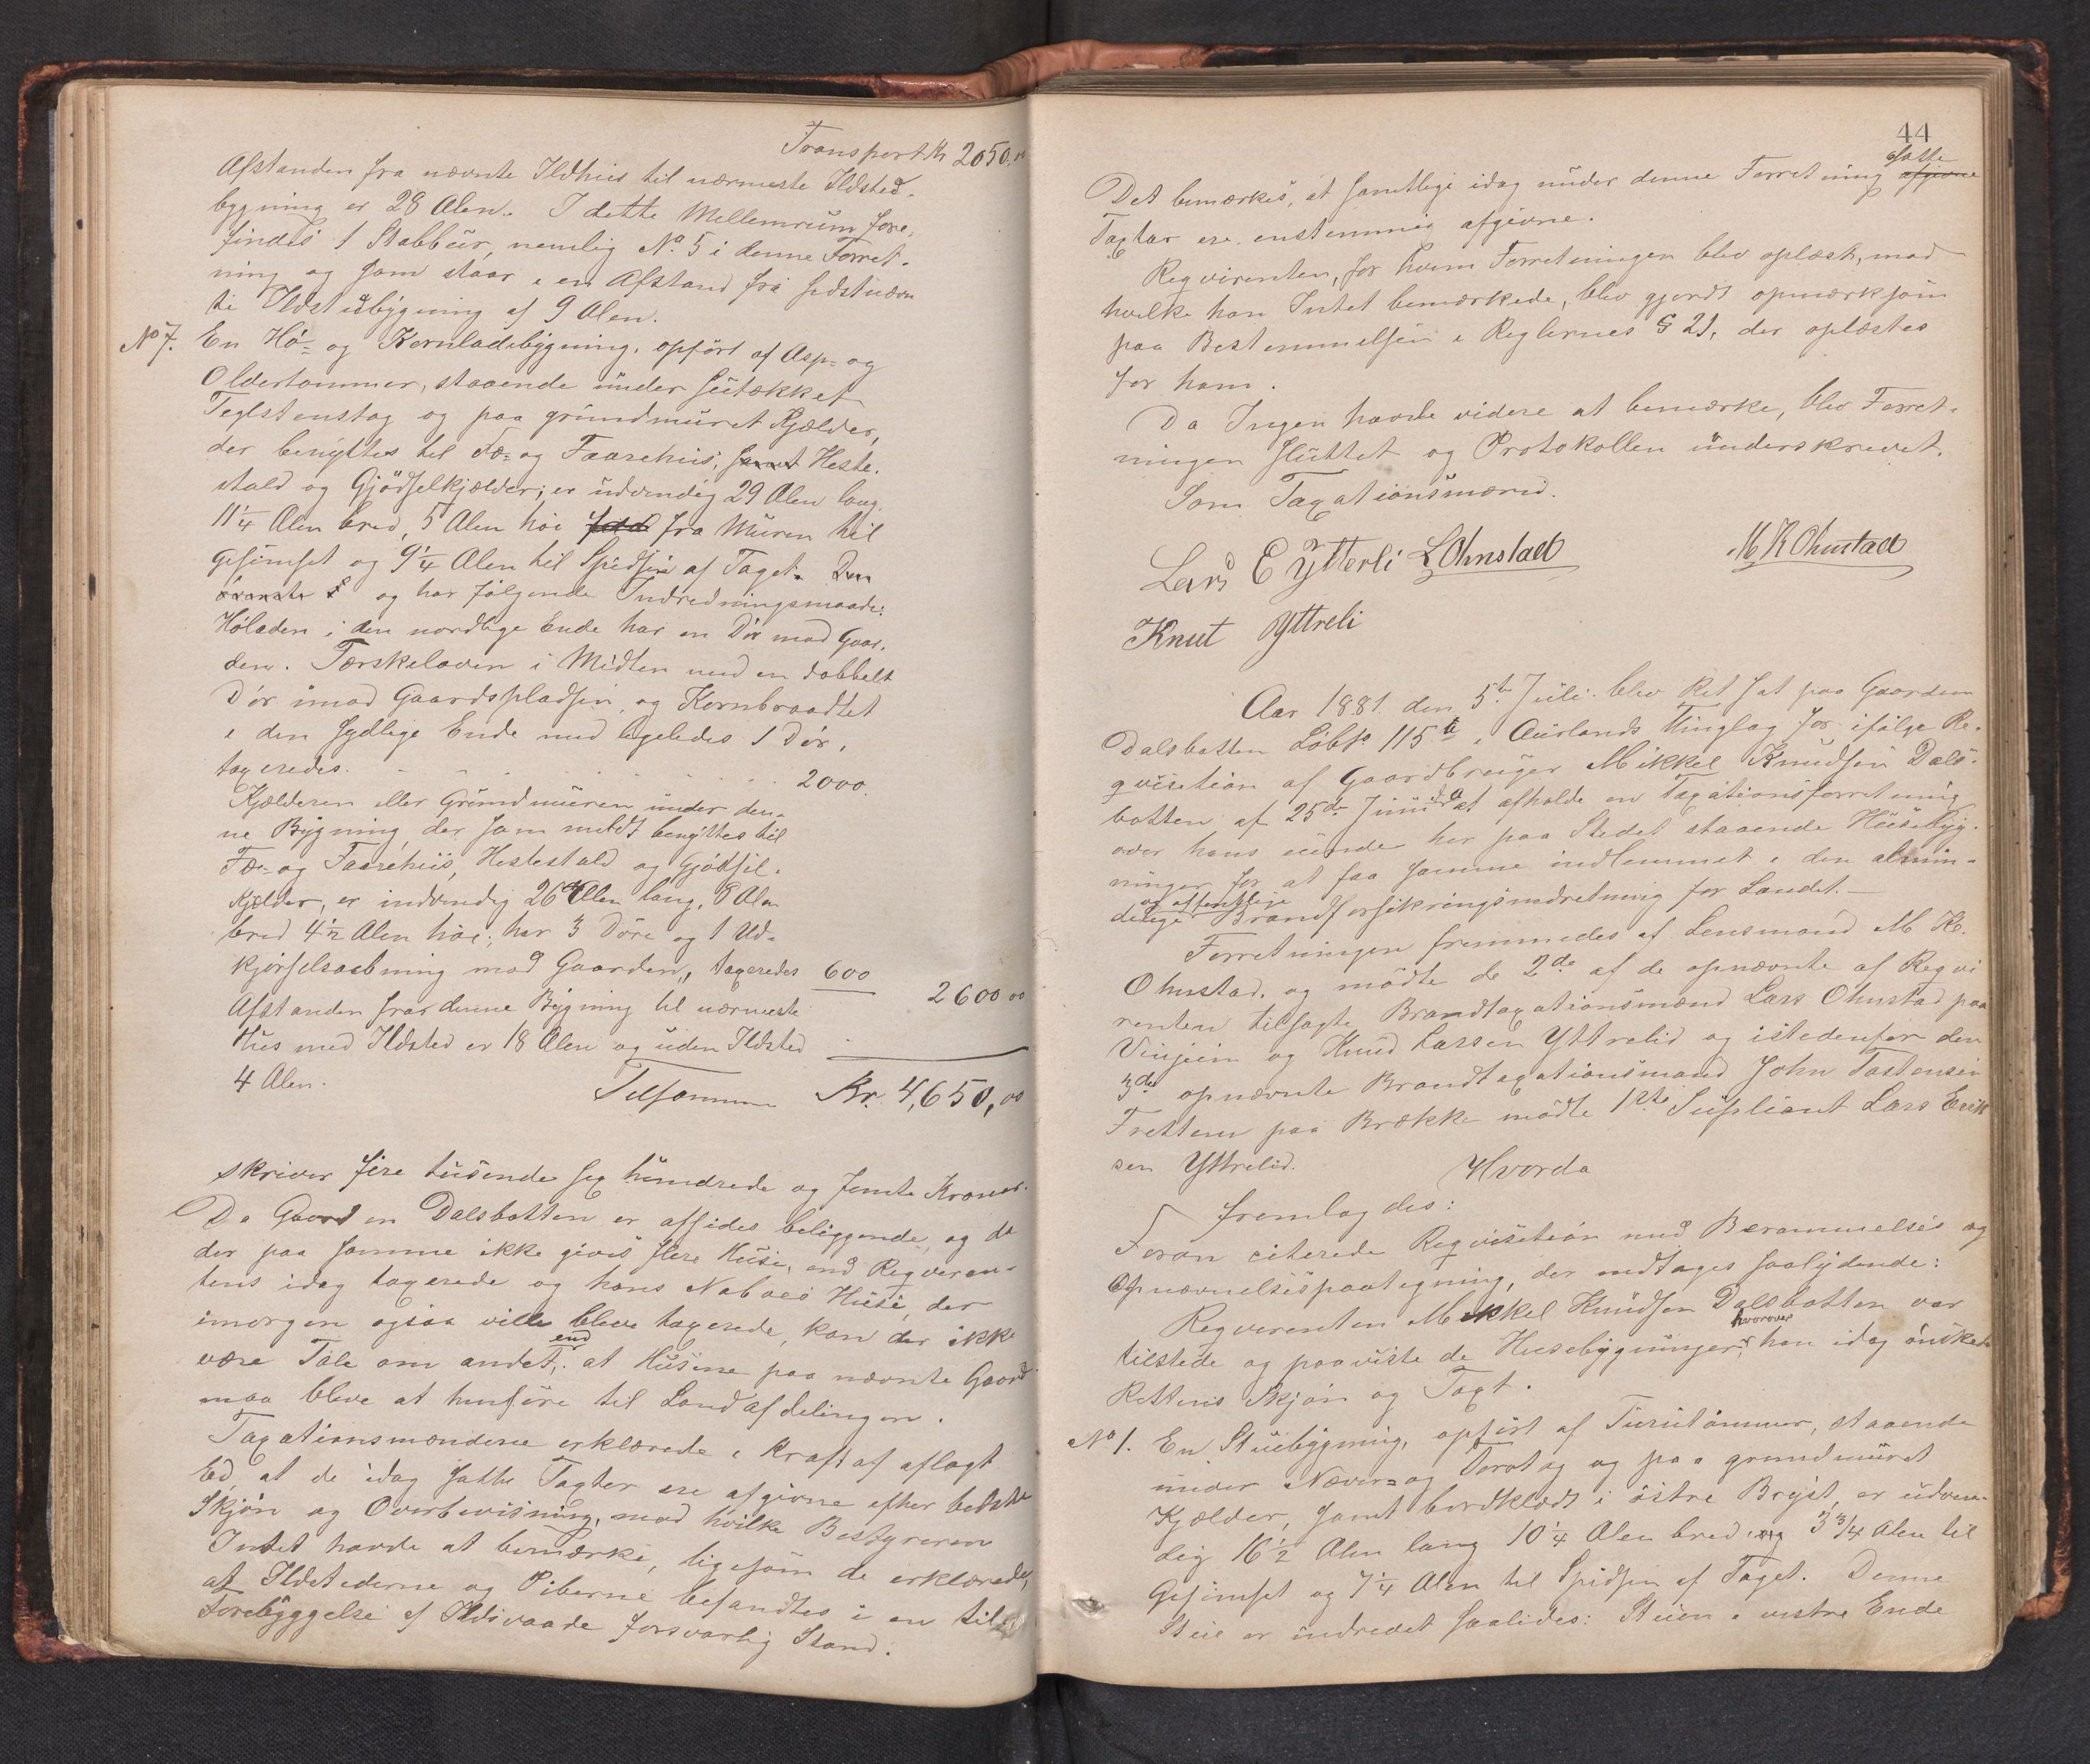 Transport Kr 2050,00
Afstanden fra nævnte Ildhus til nærmeste Ildsted-
bygning er 28 Alen. I dette Mellemrum fore-
findes 1 Stabbur, nemlig No. 5 i denne Forret-
ning og som staar i en Afstand fra sidstnævn
te Ildstedbygning af 9 Alen.
No 7. En Hö- og Kornladebygning, opfört af Asp- og
Oldertömmer, staaende under sutækket
Teglstenstag og paa grundmuret Kjælder,
der benyttes til Fæ- og Faarehus, samt Heste-
stald og Gjödselkjælder; er udvendig 29 Alen lang,
11 1/4 Alen bred, 5 Alen höi fra Muren til
Gesimset og 9 1/4 Alen til Spidsen af Taget. Den
överste og har fölgende Indredningsmaade:
Höladen i den nordlige Ende har en Dör mod Gaar-
den. Tærskeloven i Midten med en dobbelt
Dör imod Gaardspladsen, og Kornbraadtet
i den sydlige Ende med ligeledes 1 Dör,
taxeredes. 2000.
Kjælderen eller Grundmuren under den-
ne Bygning, der som meldt benyttes til
Fæ- og Faarehus, Hestestald og Gjödsel-
kjelder, er indvendig 26 Alen lang, 8 Alen
bred 4 1/2 Alen höi; har 3 Döre og 1 Ud-
kjörselsaabning mod Gaarden, taxeredes 600
2600 00
Afstanden fra denne Bygning til nærmeste
Hus med Ildsted er 18 Alen og uden Ildsted
4 Alen.
Tilsammen Kr. 4,650,00
skriver fire tusende sex hundrede og femti Kroner.
Da Gaarden Dalsbotten er afsides beliggende, og da
der paa samme ikke gives flere Huse, end Reqviren-
tens idag taxerede og hans Naboes Huse, der
imorgen ogsaa ville blive taxerede, kan der ikke
være Tale om andet, end at Husene paa nævnte Gaard
maa blive at henföre til Landafdelingen.
Taxationsmændene erklærede i Kraft af aflagt
Ed, at de idag satte Taxter ere afgivne efter bedste
Skjön og Overbevisning, mod hvilke Bestyreren
Intet havde at bemærke, ligesom de erklærede,
at Ildstederne og Piberne befandtes i en til
Forebyggelse af Ildsvaade forsvarlig Stand.
44
Det bemærkes, at samtlige idag under denne Forretning afgivne satte
Taxter ere enstemmig afgivne.
Reqvirenten, for hvem Forretningen blev oplæst, mod
hvilke han Intet bemærkede, blev gjordt opmærksom
paa Bestemmelsen i Reglernes § 21, der oplæstes
for ham.
Da Ingen havde videre at bemærke, blev Forret-
ningen sluttet og Protokollen underskrevet.
Som Taxationsmænd.
Lars E Ytterli L Ohnstad M K Ohnstad
Knut Yttreli
Aar 1881 den 5te Juli blev Ret sat paa Gaarden
Dalsbotten Löbk 115 i Aurlands Thinglag for ifölge Re-
qvisition af Gaardbruger Mikkel Knudsen Dals-
botten af 25de Juni d.A. at afholde en Taxationsforretning
over hans eiende her paa Stedet staaende Husebyg-
ninger for at faa samme indlemmet i den almin-
delige og offentlige Brandforsikringsindretning for Landet.—
Forretningen fremmedes af Lensmand M K.
Ohnstad, og mödte de 2de af de opnævnte af Reqvi
renten tilsagte Brandtaxationsmænd Lars Ohnstad paa
Vinjein og Knud Larsen Yttrelid og istedenfor den
3de opnævnte Brandtaxationsmand John Tostensen
Fretten paa Brække mödte 1ste Supliant Lars Erik
sen Yttrelid. Hvorda
fremlagdes:
Foran citerede Reqvisition med Berammelses og
Opnævnelsespaategning, der indtages saalydende:
Reqverenten Mikkel Knudsen Dalsbotten var
tilstede og paaviste de Husebygninger, hvorover han idag önskede
Rettens Skjön og Taxt.
No 1. En Stuebygning, opfört af Furutömmer, staaende
under Næver- og Torvtag og paa grundmuret
Kjælder, samt bordklædt i östre Bryst, er udven-
dig 16 1/2 Alen lang 10 1/4 Alen bred, og 3 3/4 Alen til
Gesimset og 7 1/4 Alen til Spidsen af Taget. Denne
Stue er indredet saaledes: Stuen i vestre Ende